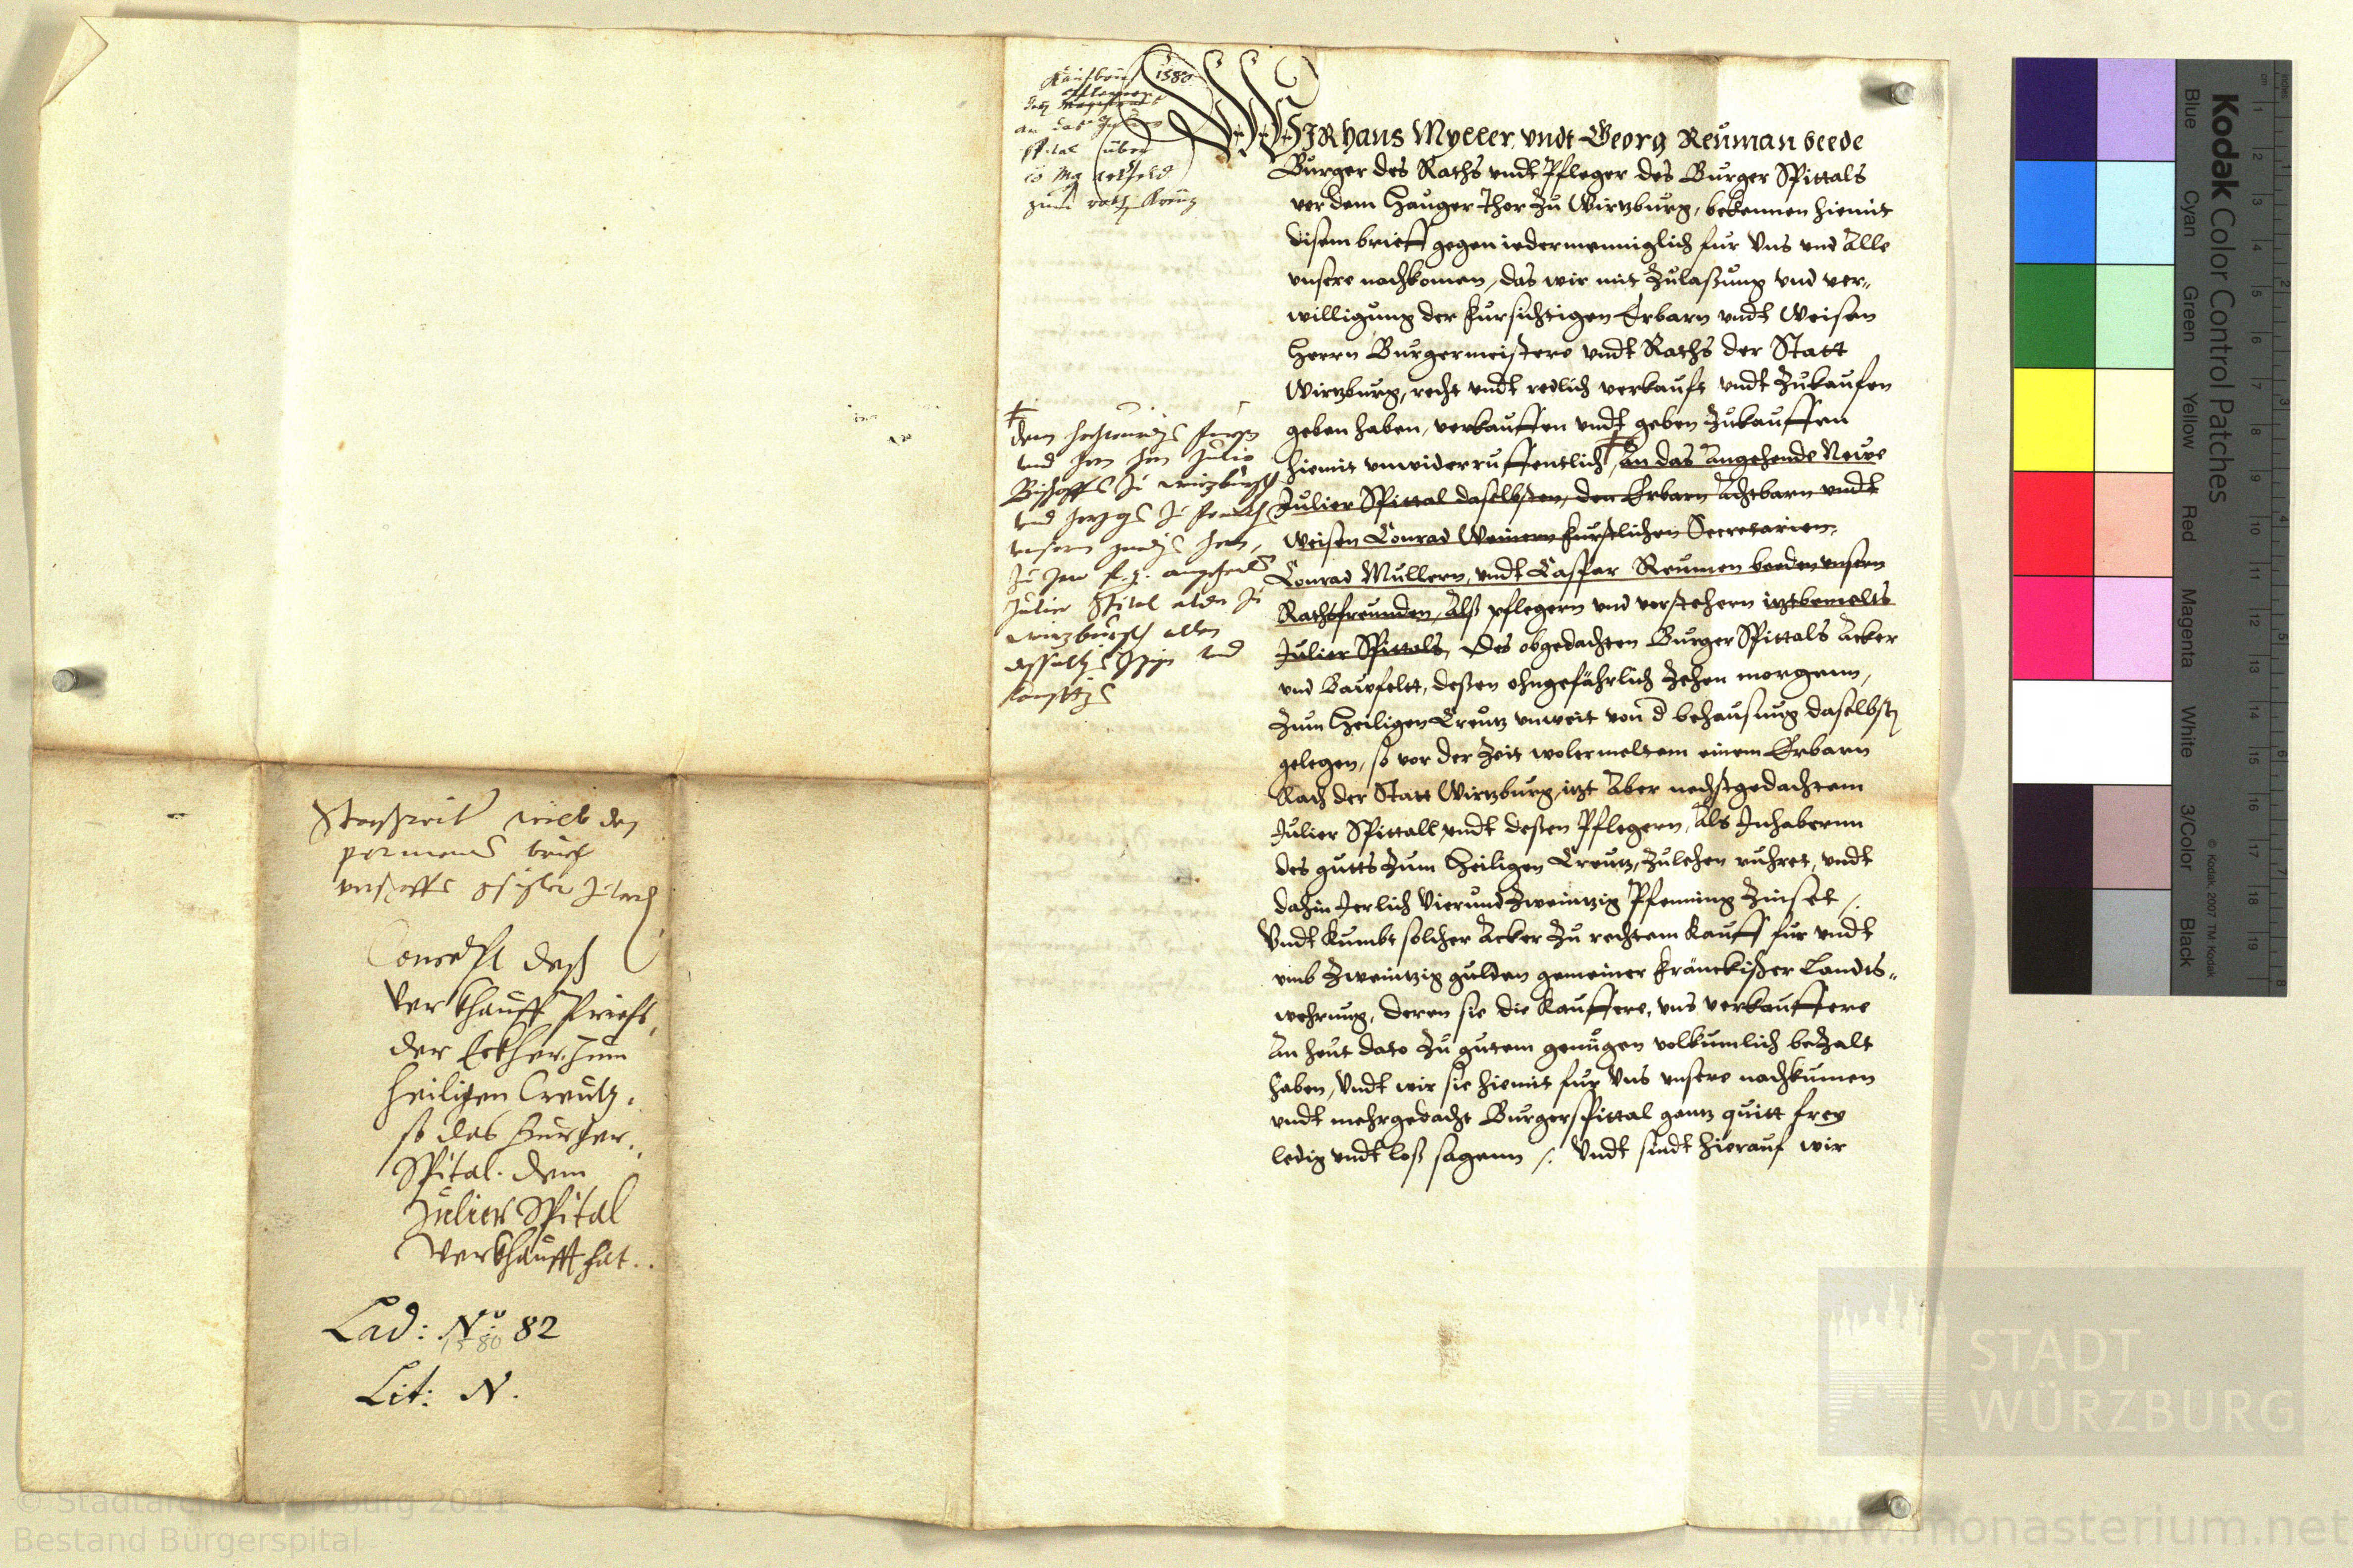 Kaufbrief 1580
an das Julier
spital über
10 Mg artfeld
zum heilg Kreuz
WIR Hans Myller vndt Georg Reuman beede
Burger des Raths vndt Pfleger des Burger Spittals
vor dem Hauger Thor Zu Wirtzburg, bekennen hiemit
disem brieff gegen iedermenniglich fur Vns vnd Alle
vnsere nachkomen, das wir mit Zulaßung vnd ver„
willigung der fursichtigen Erbarn vndt Weisen
Herrn Burgermeistere vndt Raths der Statt
Wirtzburg, recht vndt redlich verkauft vndt Zukaufen
geben haben, verkauffen vndt geben Zukauffen
hiemit vnwiderruffentlich, An das Angehende Newe
Julier Spittal daselbsten, den Erbarn Achtbarn vndt
Weisen Conrad Weinern furstlichen Secretarien,
Conrad Mullern, vndt Caspar Reumen beeden vnsern
Rathsfreunden, Alß pflegern vnd vorstehern itztbemelts
Julier Spittals, des obgedachten Burger Spittals Acker
vnd Bawfeltt, deßen ohngefährlich Zehen morgenn,
Zum Heiligen Creutz vnweit von d behausung daselbst
gelegen, so vor der Zeit wolermeltem einem Erbarn
Rath der Statt Wirtzburg, itzt Aber nechstgedachtem
Julier Spittall vndt deßen Pflegern, Als Inhabernn
des gutts Zum Heiligen Creutz, Zulehen ruhret, vndt
dahin Jerlich Vierundzweintzig Pfenning Zinset /.
Vndt kumbt solcher Acker Zu rechtem kauff fur vndt
vmb Zweintzig gulden gemeiner fränckischer Landts„
wehrung, deren sie die kauffere, vns verkauffere
An heut dato Zu gutem genugen volkumlich bezalt
haben, Vndt wir sie hiemit fur Vns vnsere nachkumen
vndt mehrgedacht Burgerspittal gantz quitt frey
ledig vndt loß sagenn /. Vndt sindt hierauf wir
dem hochwürdigen fursten
vnd hern hern Julio
Bischoffen zu wirtzburgk
vnd hertzogen zu francken
vnserm gnedigen hern,
zu Irer f. g. angehenden
Julier Spital alda zu
wirtzburgk
vnd
brief
Concept deß
Verkhauff Briefs,
der Eckher zum
heiligen Creutz,
so das Burger
Spital dem
Julier Spital
Verkhaufft hat..
Lad: No: 82
1580
Lit: N.
Kodak Color Control Patches
Blue Cyan Green Yellow Red Magenta White 3/Color Black
© Kodak, 2007 TM: Kodak
STADT
WÜRZBURG
© Stadtarchiv Würzburg 2011
Bestand Bürgerspital
www.monasterium.net